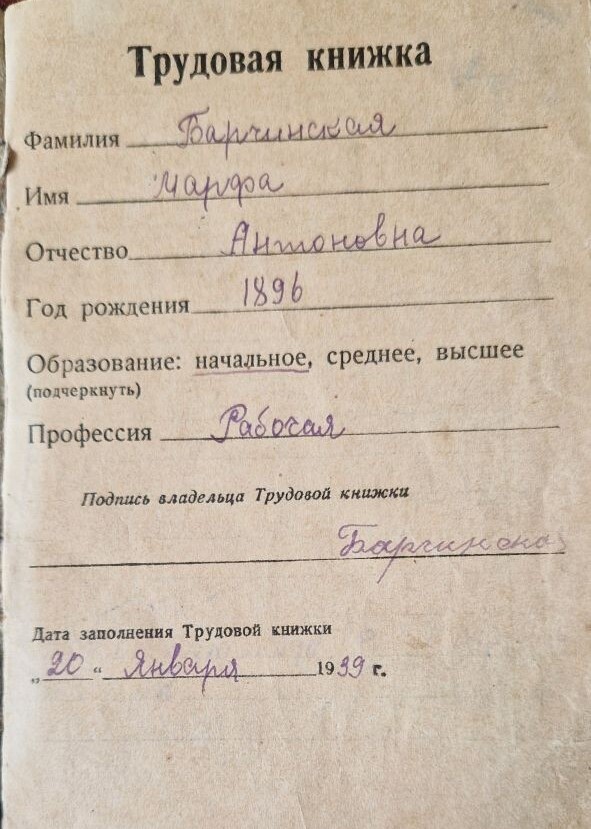 Трудовая книжка
Фамилия Барчинская
Имя Марфа
Отчество Антоновна
Год рождения 1896
Образование: начальное, среднее, высшее
(подчеркнуть)
Профессия Рабочая
Подпись владельца Трудовой книжки
Барчинская
Дата заполнения Трудовой книжки
„20“ Января 1939 г.